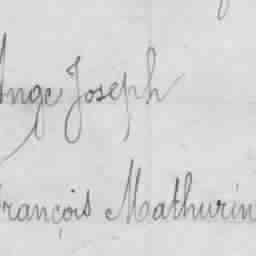 Ange Joseph
François Mathurin